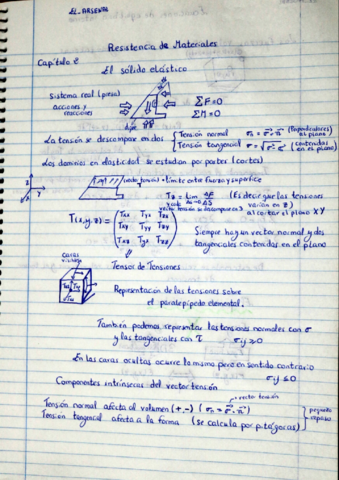 EL ARSENAL
Resistencia de Materiales
Capítulo 2
El sólido elástico
Sistema real (pieza)
acciones y
reacciones
ΣF=0
ΣM=0
La tensión se descompone en dos
Tensión normal σn = σ · n (Perpendiculares al plano)
Tensión tangencial (contenidas en el plano)
Los dominios en elasticidad se estudian por partes (cortes)
límite entre fuerza y superficie
(Es decir que las tensiones
varían en z)
al cortar el plano XY
T(x,y,z) =
Siempre hay un vector normal y dos
tangenciales contenidas en el plano
caras
vistas
Tensor de Tensiones
Representación de las tensiones sobre
el paralepípedo elemental.
También podemos representar las tensiones normales con σ
y las tangenciales con τ σ y ≥0
En las caras ocultas ocurre lo mismo pero en sentido contrario
σ y ≤0
Componentes intrínsecas del vector tensión
vector tensión
Tensión normal afecta al volumen (+,-) (σn = σ · n)
Tensión tangencial afecta a la forma (se calcula por pitágoras)
pequeño
repaso